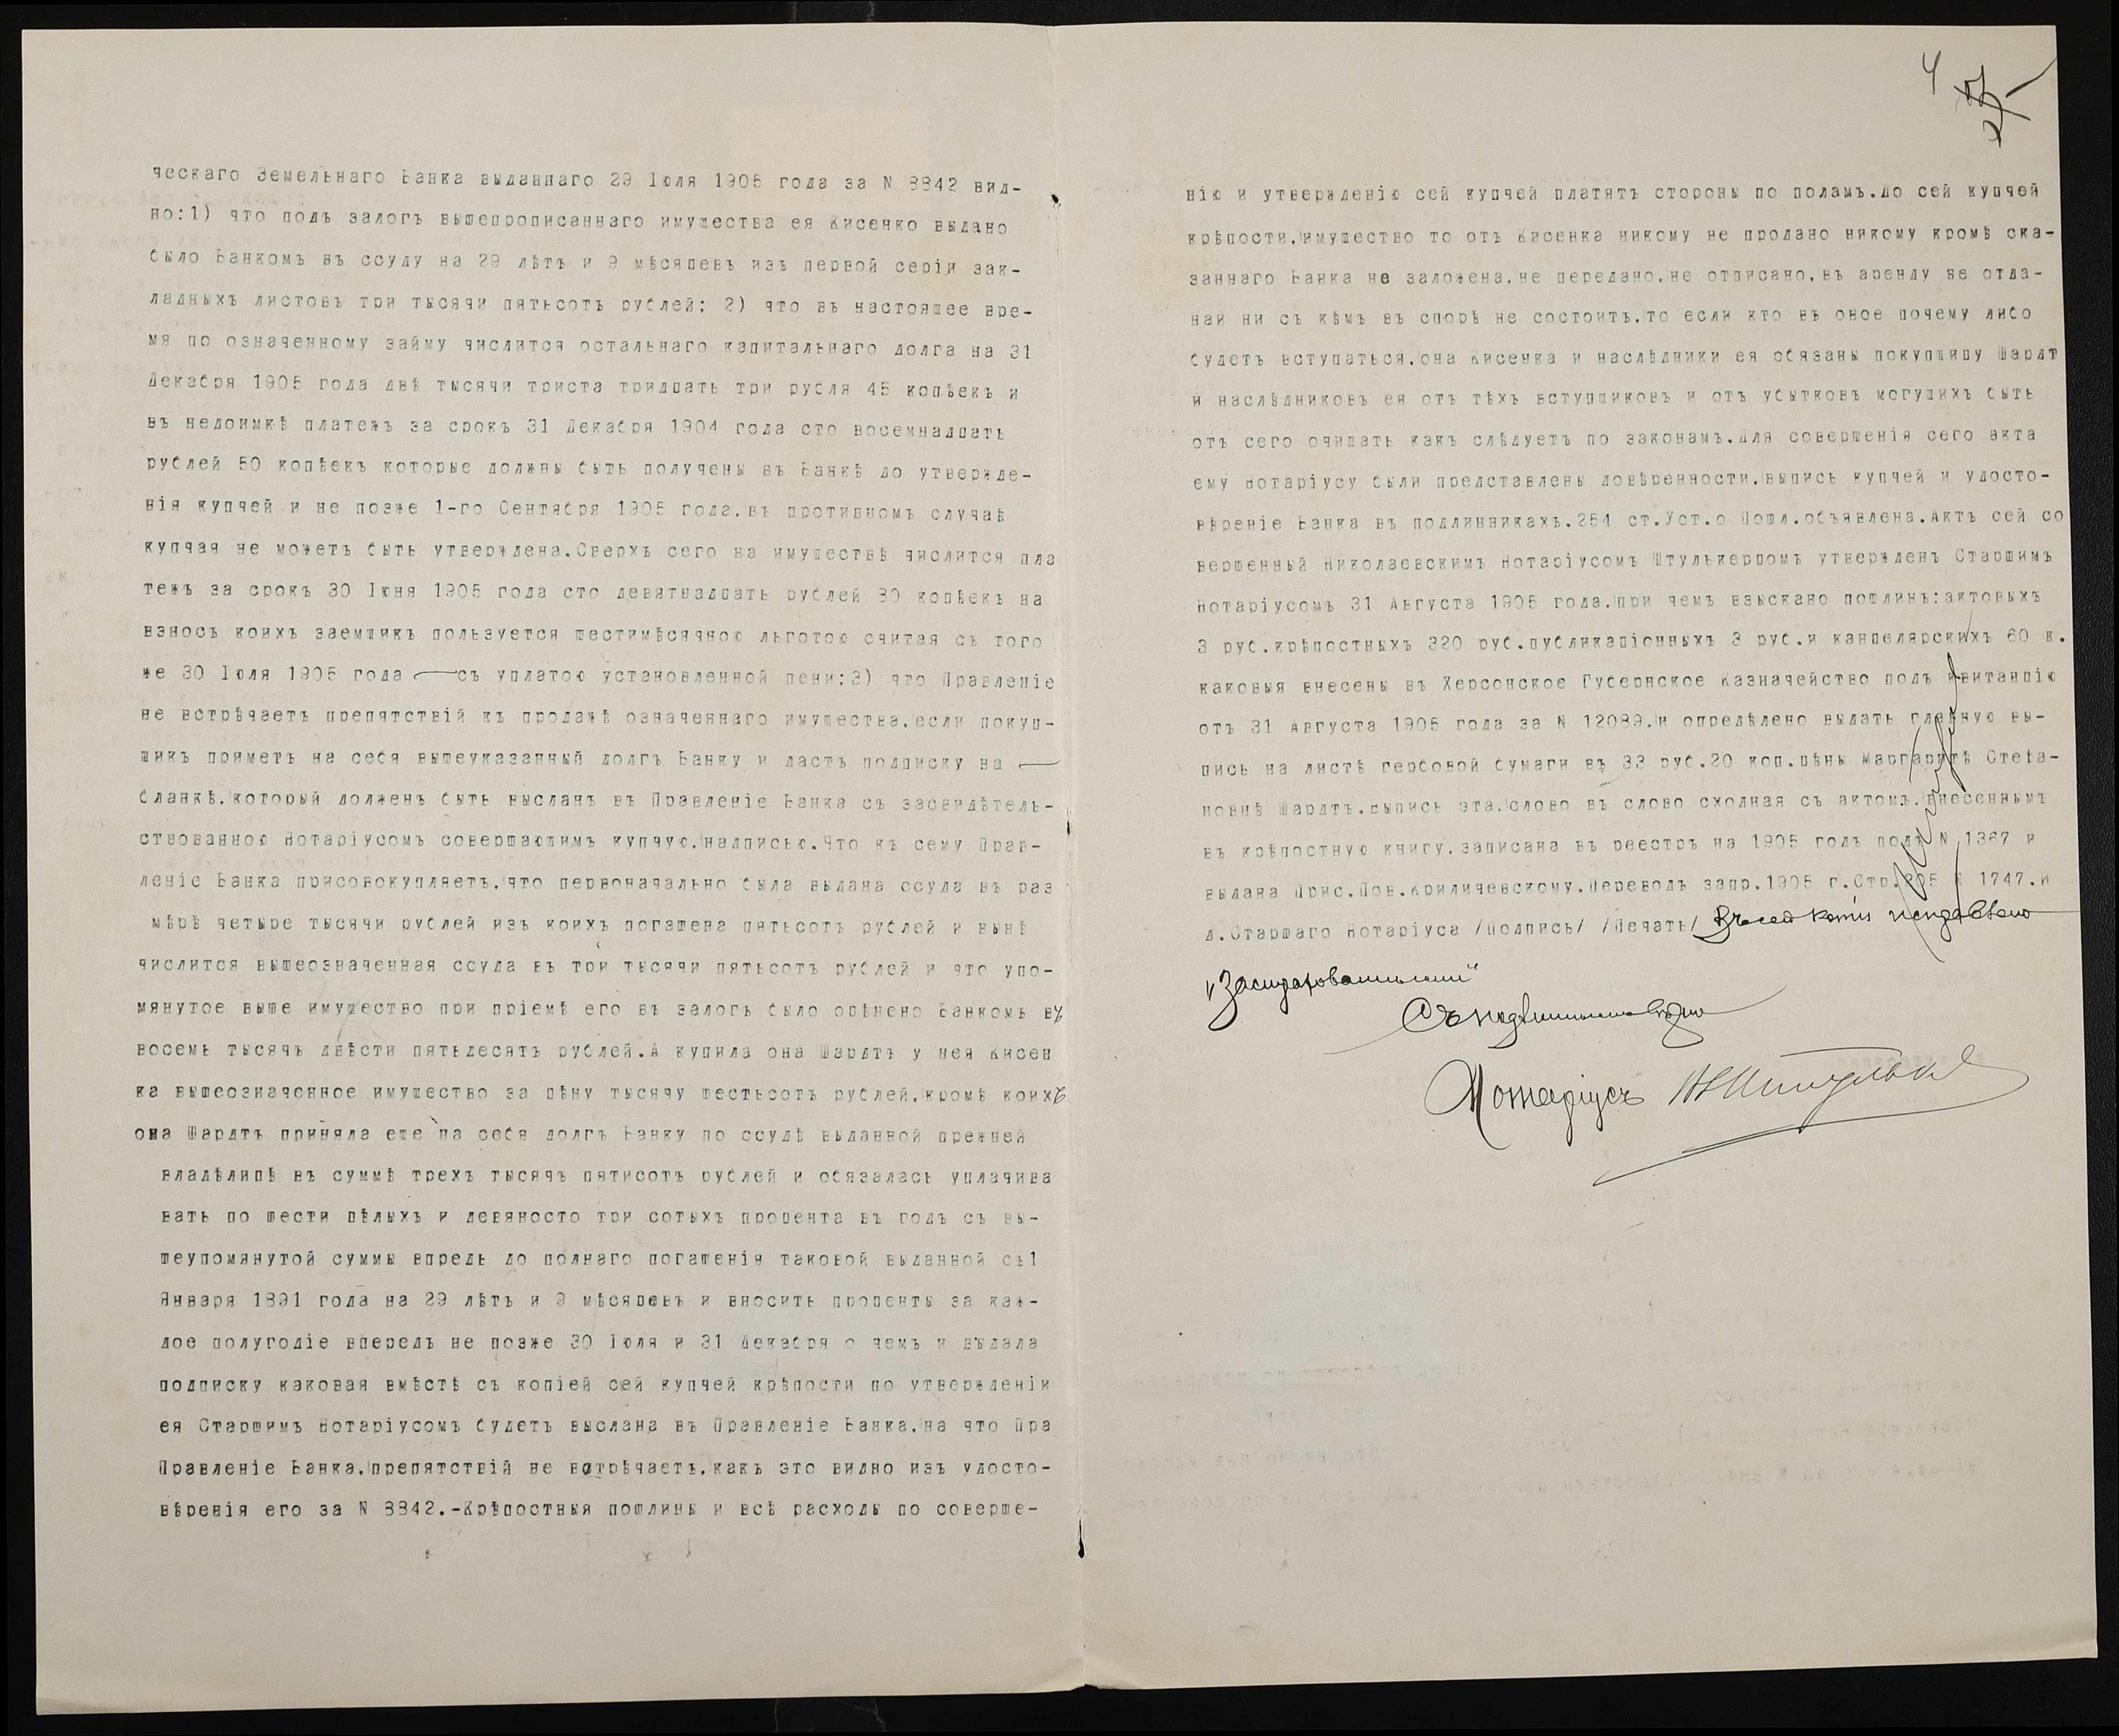 ческаго Земельнаго Банка выданнаго 29 Іюля 1905 года за N 8842 вид-
но:1) что подъ залогъ вышепрописаннаго имущества ея Кисенко выдано
было Банкомъ въ ссуду на 29 лѣтъ и 9 мѣсяцевъ изъ первой серіи зак-
ладныхъ листовъ три тысячи пятьсотъ рублей; 2) что въ настоящее вре-
мя по означенному займу числится остальнаго капитальнаго долга на 31
Декабря 1905 года двѣ тысячи триста тридцать три рубля 45 копѣекъ и
въ недоимкѣ платежъ за срокъ 31 Декабря 1904 года сто восемнадцать
рублей 50 копѣекъ которые должны быть получены въ Банкѣ до утвержде-
нія купчей и не позже 1-го Сентября 1905 года,въ противномъ случаѣ
купчая не можетъ быть утверждена.Сверхъ сего на имуществѣ числится пла
тежъ за срокъ 30 Іюня 1905 года сто девятнадцать рублей 80 копѣекъ на
взносъ коихъ заемщикъ пользуется шестимѣсячною льготою считая съ того
же 30 Іюля 1905 года — съ уплатою установленной пени;3) что Правленіе
не встрѣчаетъ препятствій къ продажѣ означеннаго имущества,если покуп-
щикъ приметъ на себя вышеуказанный долгъ Банку и дастъ подписку на —
бланкѣ,который долженъ быть высланъ въ Правленіе Банка съ засвидѣтель-
ствованною Нотаріусомъ совершающимъ купчую,надписью.Что къ сему Прав-
леніе Банка присовокупляетъ,что первоначально была выдана ссуда въ раз
мѣрѣ четыре тысячи рублей изъ коихъ погашена пятьсотъ рублей и нынѣ
числится вышеозначенная ссуда въ три тысячи пятьсотъ рублей и что упо-
мянутое выше имущество при пріемѣ его въ залогъ было оцѣнено Банкомъ въ
восемь тысячъ двѣсти пятьдесятъ рублей.А купила она Шардтъ у нея Кисен
ка вышеозначенное имущество за цѣну тысячу шестьсотъ рублей,кромѣ коихъ
она Шардтъ приняла еще на себя долгъ Банку по ссудѣ выданной прежней
владѣлицѣ въ суммѣ трехъ тысячъ пятисотъ рублей и обязалась уплачива
вать по шести цѣлыхъ и девяносто три сотыхъ процента въ годъ съ вы-
шеупомянутой суммы впредь до полнаго погашенія таковой выданной съ1
Января 1891 года на 29 лѣтъ и 9 мѣсяцевъ и вносить проценты за каж-
дое полугодіе впередъ не позже 30 Іюля и 31 Декабря о чемъ и выдала
подписку каковая вмѣстѣ съ копіей сей купчей крѣпости по утвержденіи
ея Старшимъ Нотаріусомъ будетъ выслана въ Правленіе Банка,на что Пра
Правленіе Банка,препятствій не встрѣчаетъ,какъ это видно изъ удосто-
вѣренія его за N 8842.-Крѣпостныя пошлины и всѣ расходы по соверше-
4
нію и утвержденію сей купчей платятъ стороны по поламъ.До сей купчей
крѣпости,имущество то отъ Кисенка никому не продано никому кромѣ ска-
заннаго Банка не заложена,не передано,не отписано,въ аренду не отда-
наи ни съ кѣмъ въ спорѣ не состоитъ,то если кто въ оное почему либо
будетъ вступаться,она Кисенка и наслѣдники ея обязаны покупщицу Шардт
и наслѣдниковъ ея отъ тѣхъ вступщиковъ и отъ убытковъ могущихъ быть
отъ сего очищать какъ слѣдуетъ по законамъ.Для совершенія сего акта
ему Нотаріусу были представлены довѣренности,выпись купчей и удосто-
вѣреніе Банка въ подлинникахъ.254 ст.Уст.о Пошл.объявлена.Актъ сей со
вершенный Николаевскимъ Нотаріусомъ Штулькерцомъ утвержденъ Старшимъ
Нотаріусомъ 31 Августа 1905 года,при чемъ взыскано пошлинъ:актовыхъ
3 руб.крѣпостныхъ 320 руб.публикаціонныхъ 3 руб.и канцелярскихъ 60 к.
каковыя внесены въ Херсонское Губернское Казначейство подъ квитанцію
отъ 31 Августа 1905 года за N 12089,и опредѣлено выдать главную вы-
пись на листѣ гербовой бумаги въ 33 руб.20 коп.цѣны Маргаритѣ Стефа-
новнѣ Шардтъ.Выпись эта,слово въ слово сходная съ актомъ,внесеннымъ
въ крѣпостную книгу,записана въ реестръ на 1905 годъ подъ N 1367 и
выдана Прис.Пов.Криличевскому.Переводъ запр.1905 г.Стр.295 N 1747.и
д.Старшаго Нотаріуса /Подпись/ /Печать/ Въ сей копіи исправлено
"Застрахованныхъ"
Съ подлиннымъ вѣрно
Нотаріусъ